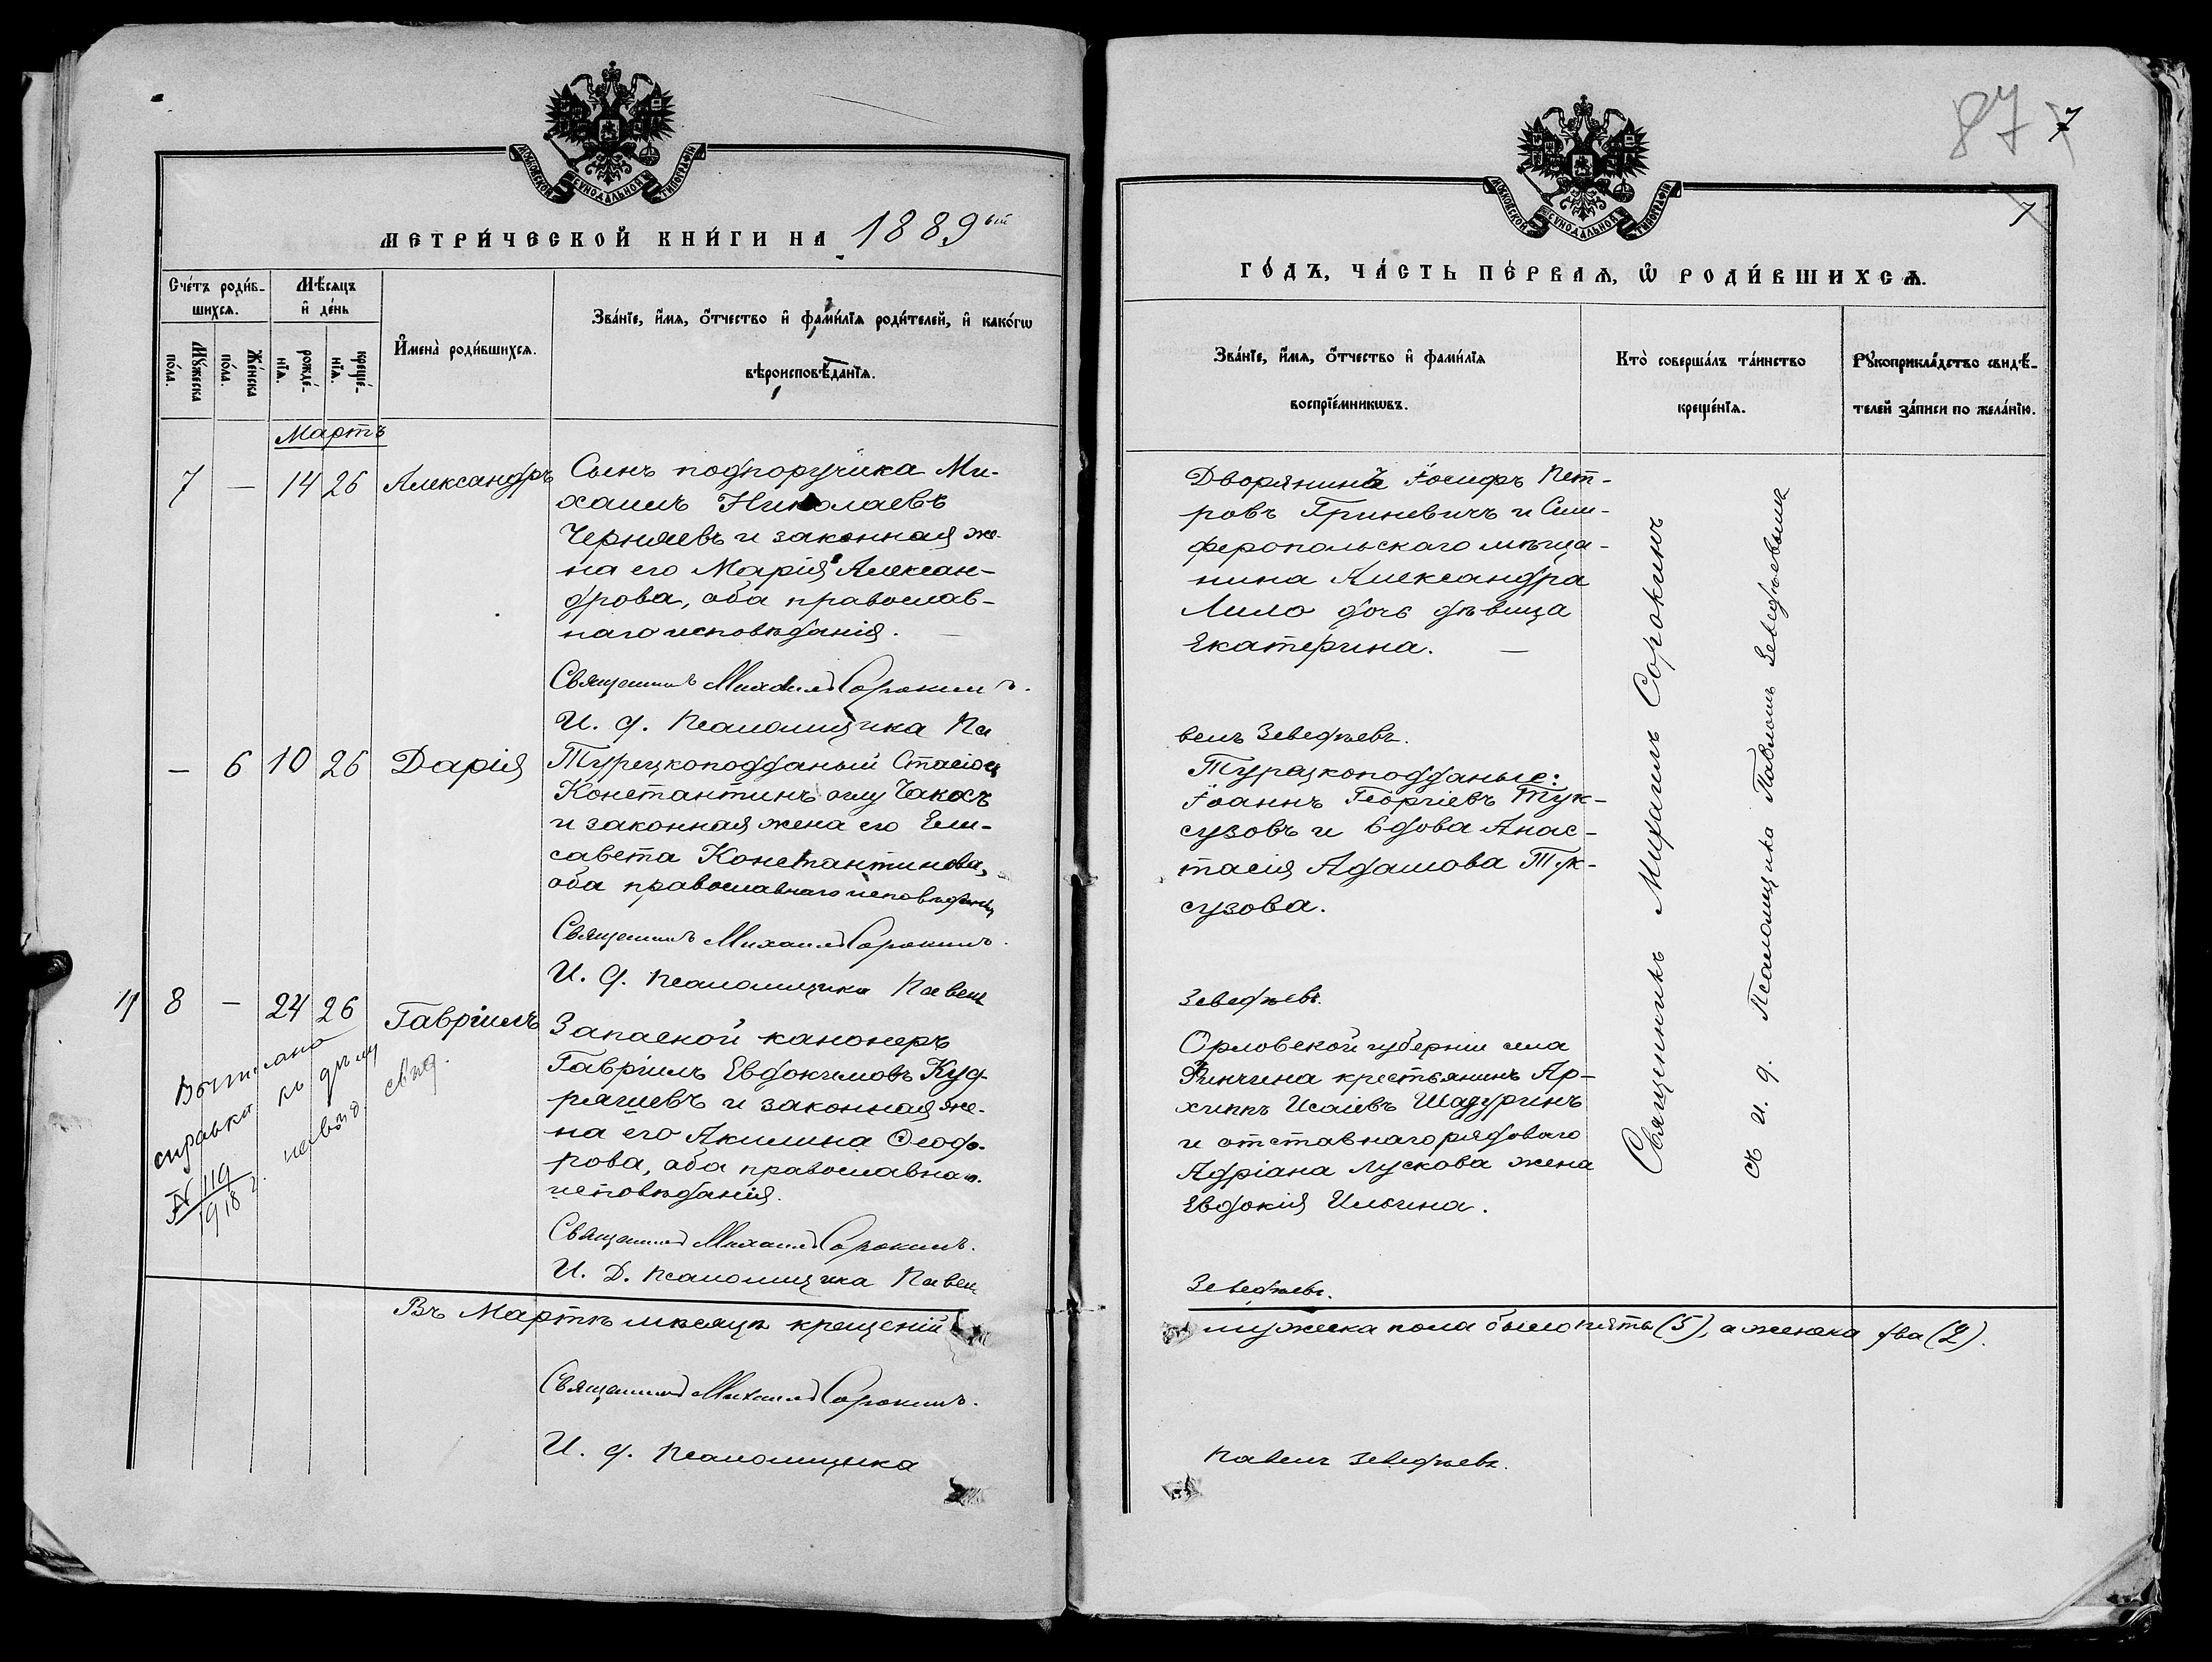 МОСКОВСКОЙ СѴНОДАЛЬНОЙ ТИПОГРАФІИ
МЕТРИ́ЧЕСКОЙ КНИ́ГИ НА 1889ый
Сче́тъ роди́в-
шихся.
Мѣ́сяцъ
и де́нь
Му́жеска
по́ла.
Же́нска
по́ла.
рожде́-
нїя.
креще́-
нїя.
И҆мена̀ роди́вшихся.
Зва́нїе, и҆́мя, ѻ҆́тчество и҆ фами́лїя роди́телей, и҆ како́гѡ
вѣроисповѣ́данїя.
Мартъ
7 — 14 26 Александръ
Сынъ подпоручика Ми-
хаилъ Николаевъ
Черняевъ и законная же-
на его Марія Алексан-
дрова, оба православ-
наго исповѣданія. —
Священникъ Михаилъ Сорокинъ.
И. д. Псаломщика Па
— 6 10 26 Дарія
Турецкоподданый Стасіон
Константинъ оглу Чакохъ
и законная жена его Ели-
савета Константинова,
оба православнаго исповѣданія
Священникъ Михаилъ Сорокинъ.
И. д. Псаломщика Павелъ
11 8 — 24 26 Гавріилъ
Запасной канонеръ
Гавріилъ Евдокимовъ Куд-
ряшевъ и законная же-
на его Акилина Ѳеодо-
рова, оба православнаго
исповѣданія.
Священникъ Михаилъ Сорокинъ.
И. Д. Псаломщика Павелъ
справка къ дѣлу
N 119
1918 г.
Въ Мартѣ мѣсяцѣ крещеній
Священникъ Михаилъ Сорокинъ.
И. д. Псаломщика
87 7
7
МОСКОВСКОЙ СѴНОДАЛЬНОЙ ТИПОГРАФІИ
ГО́ДЪ, ЧА́СТЬ ПЕ́РВАЯ, Ѿ РОДИ́ВШИХСЯ.
Зва́нїе, и҆́мя, ѻ҆́тчество и҆ фами́лїя
воспрїе́мникѡвъ.
Кто̀ соверша́лъ та́инство
креще́нїя.
Рꙋкоприкла́дство свидѣ́-
телей за́писи по жела́нїю.
Дворянинъ Іосифъ Пет-
ровъ Гриневичъ и Сим-
феропольскаго мѣща-
нина Александра
Лило дочь дѣвица
Екатерина. —
велъ Зеведѣевъ.
Турецкоподданые:
Іоаннъ Георгіевъ Тук-
сузовъ и вдова Анас-
тасія Адамова Тук-
сузова.
Зеведѣевъ.
Орловской губерніи села
крестьянинъ Ар-
хипъ Исаіевъ Шадуринъ
и отставнаго рядоваго
Адріана Лускова жена
Евдокія Ильина.
Зеведѣевъ.
Священникъ Михаилъ Сорокинъ
съ и. д. Псаломщика Павломъ Зеведѣевымъ
мужеска пола было пять (5), а женска два (2).
Павелъ Зеведѣевъ.